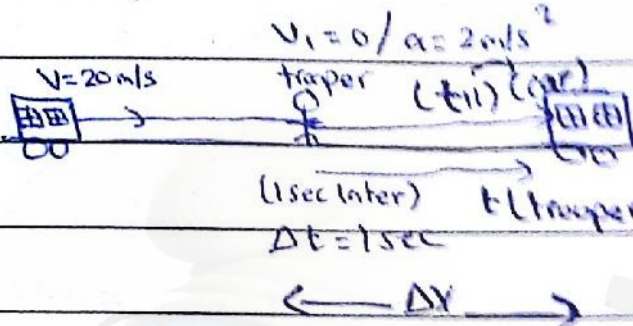 V₁ = 0 / a = 2 m/s²
V = 20 m/s traper (t+1) (car)
(1 sec later) t (trooper
Δt = 1 sec
ΔX